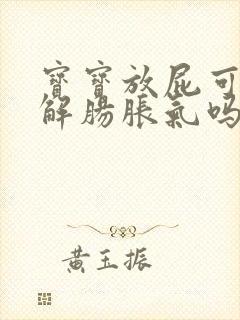 寶寶放屁可
解腸脹氣嗎
黃玉振